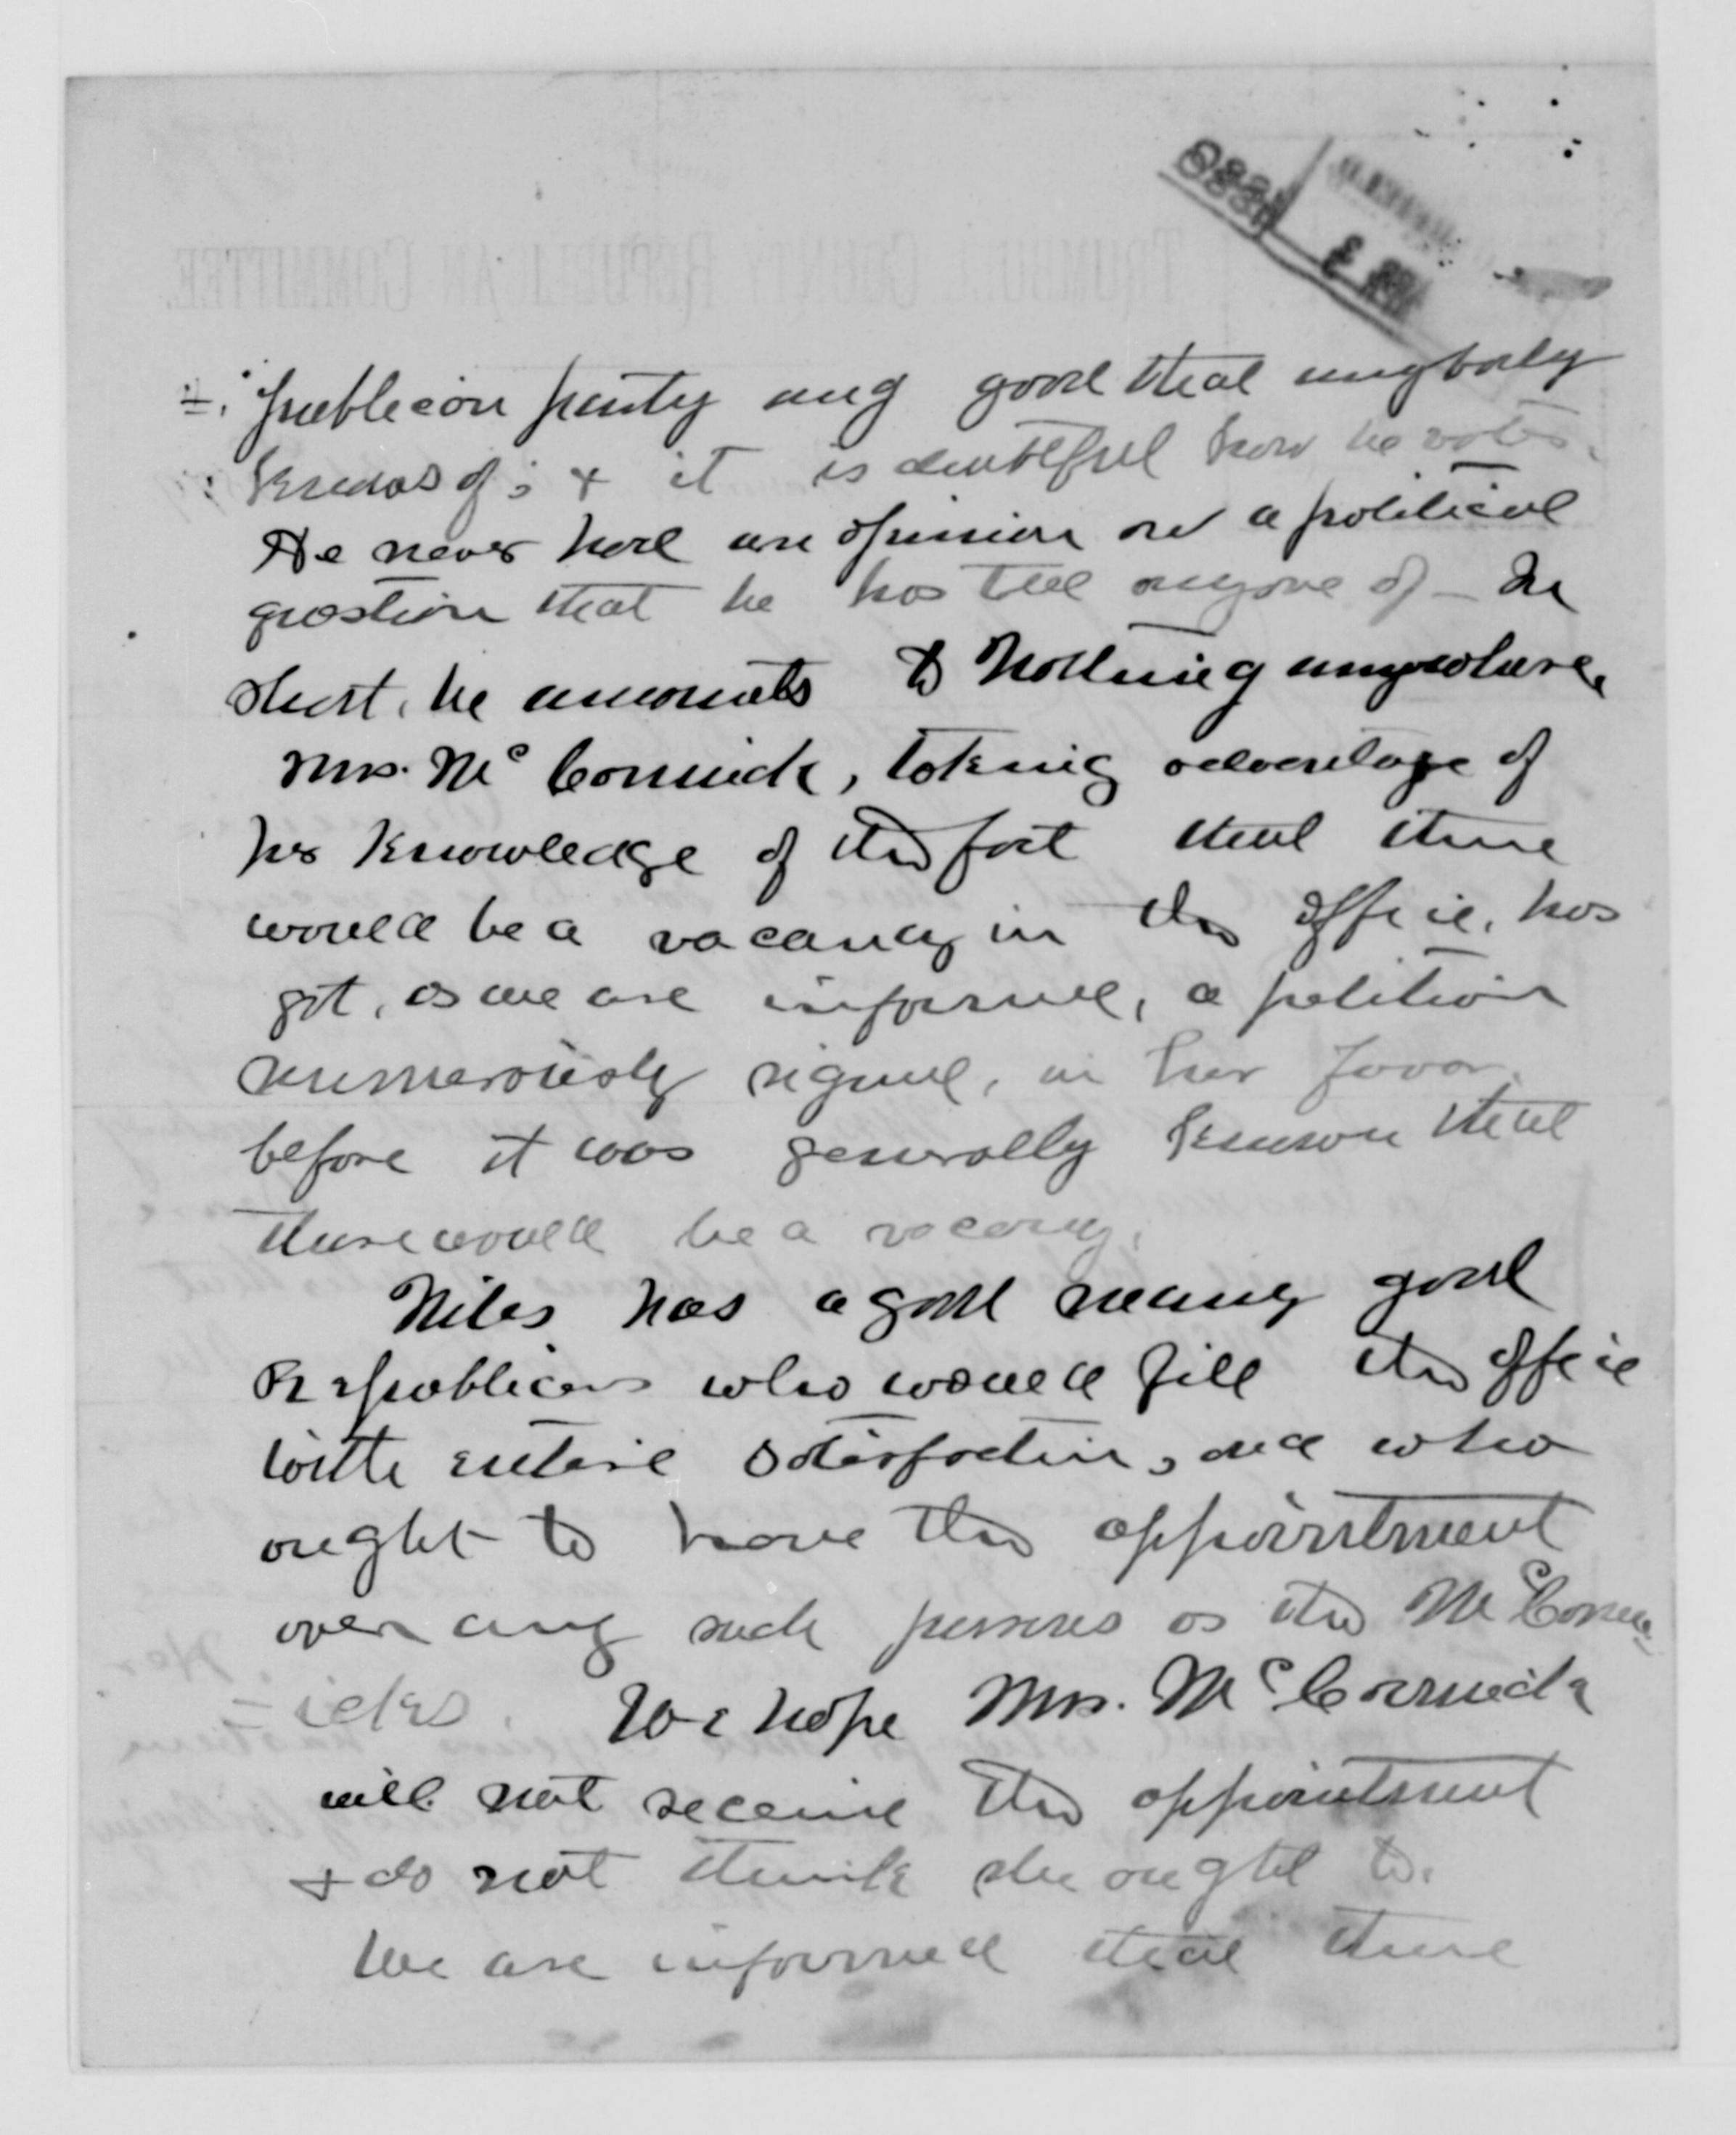 TRUMBULL COUNTY REPUBLICAN COMMITTEE.
=publican party any good that anybody
knows of; & it is doubtful how he votes.
He never had an opinion on a political
question that he has told anyone of – In
short, he amounts to nothing anywhere.
Mrs. McCormick, taking advantage of
her knowledge of the fact that there
would be a vacancy in the office, has
got, as we are informed, a petition
numerously signed, in her favor,
before it was generally known that
there would be a vacancy.
Niles has a good many good
Republicans who would fill the office
with entire satisfaction, and who
ought to have the appointment
over any such persons as the McCorm=
=icks. We hope Mrs. McCormick
will not receive the appointment
& do not think she ought to.
We are informed that there